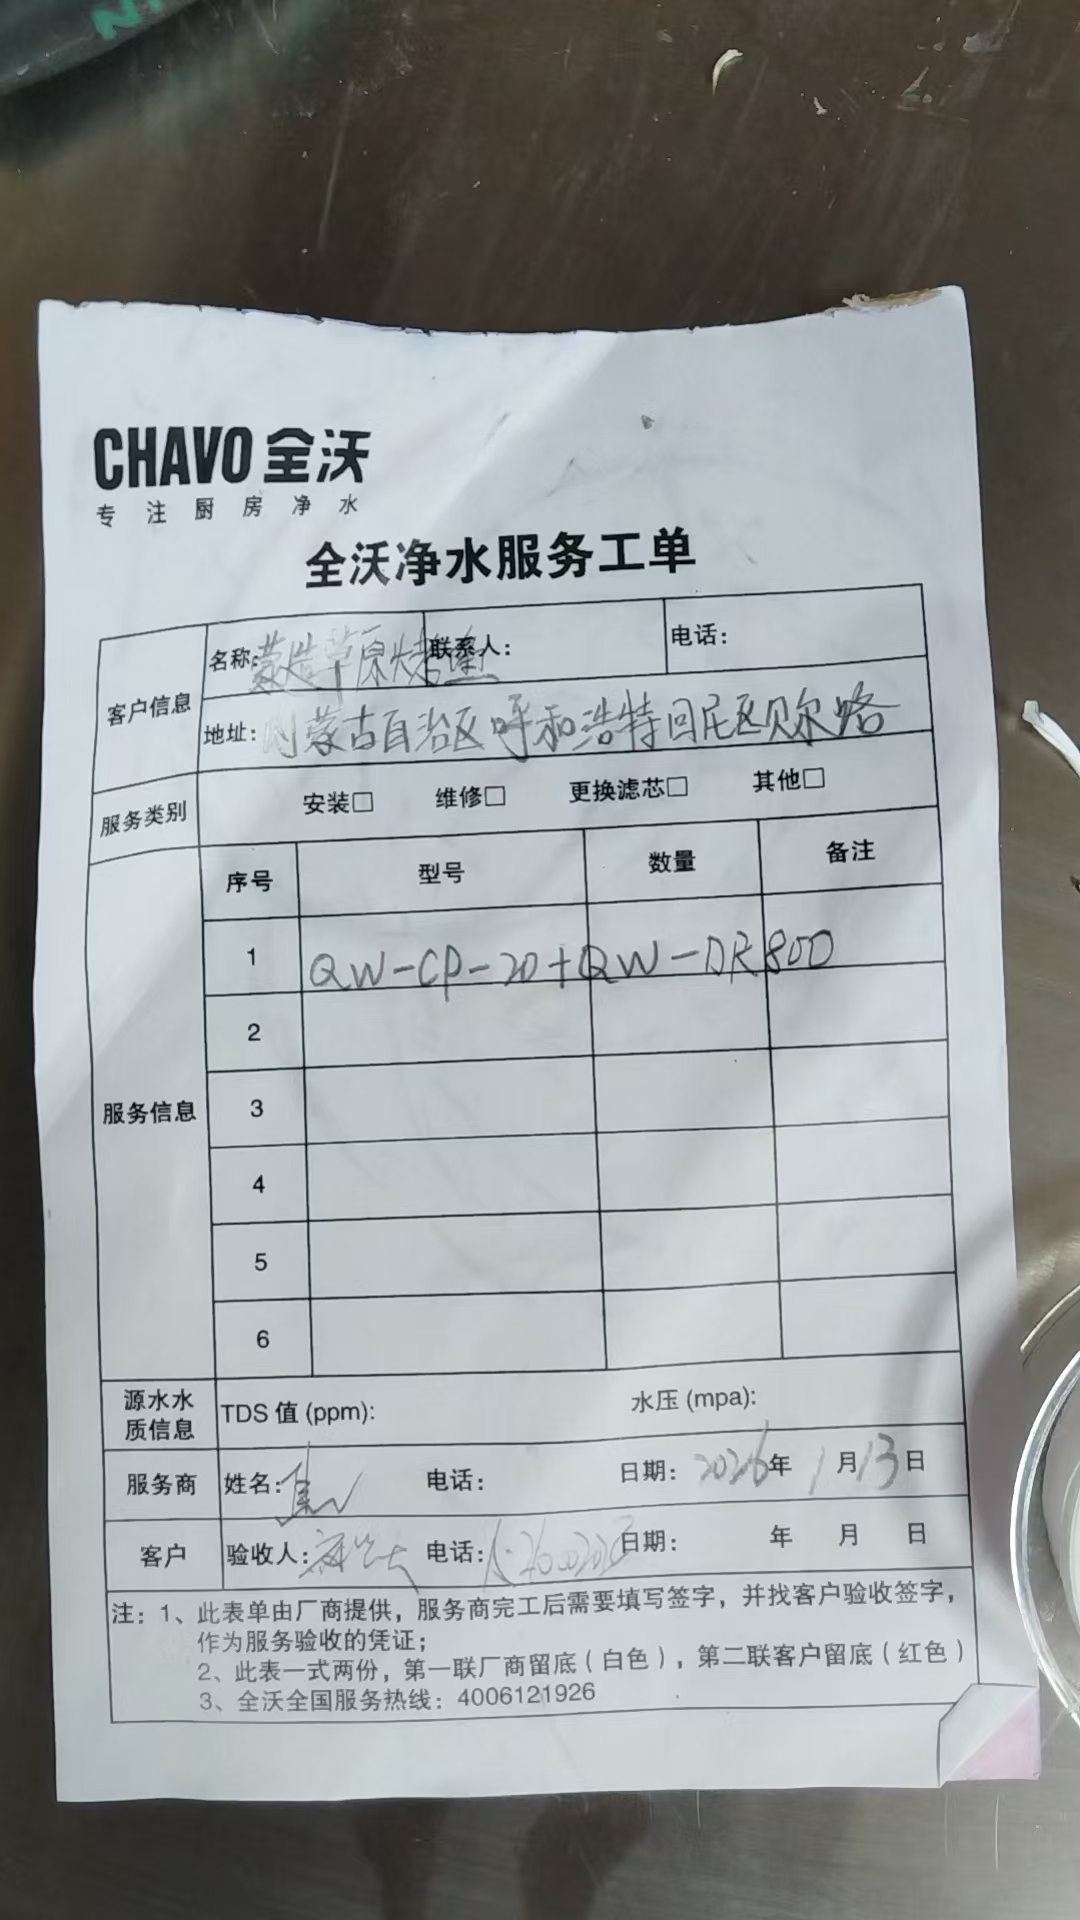 CHAVO 全沃
专注厨房净水
全沃净水服务工单
客户信息
名称: 蒙 草原烤 联系人: 电话:
地址: 内蒙古自治区呼和浩特回民区贝尔路
服务类别 安装□ 维修□ 更换滤芯□ 其他□
服务信息
序号 型号 数量 备注
1 QW-CP-20+QW-DR800
2
3
4
5
6
源水水质信息 TDS 值 (ppm): 水压 (mpa):
服务商 姓名: 电话: 日期: 2026年 1月13日
客户 验收人: 电话: 日期: 年 月 日
注：1、此表单由厂商提供，服务商完工后需要填写签字，并找客户验收签字，
作为服务验收的凭证；
2、此表一式两份，第一联厂商留底（白色），第二联客户留底（红色）
3、全沃全国服务热线：4006121926